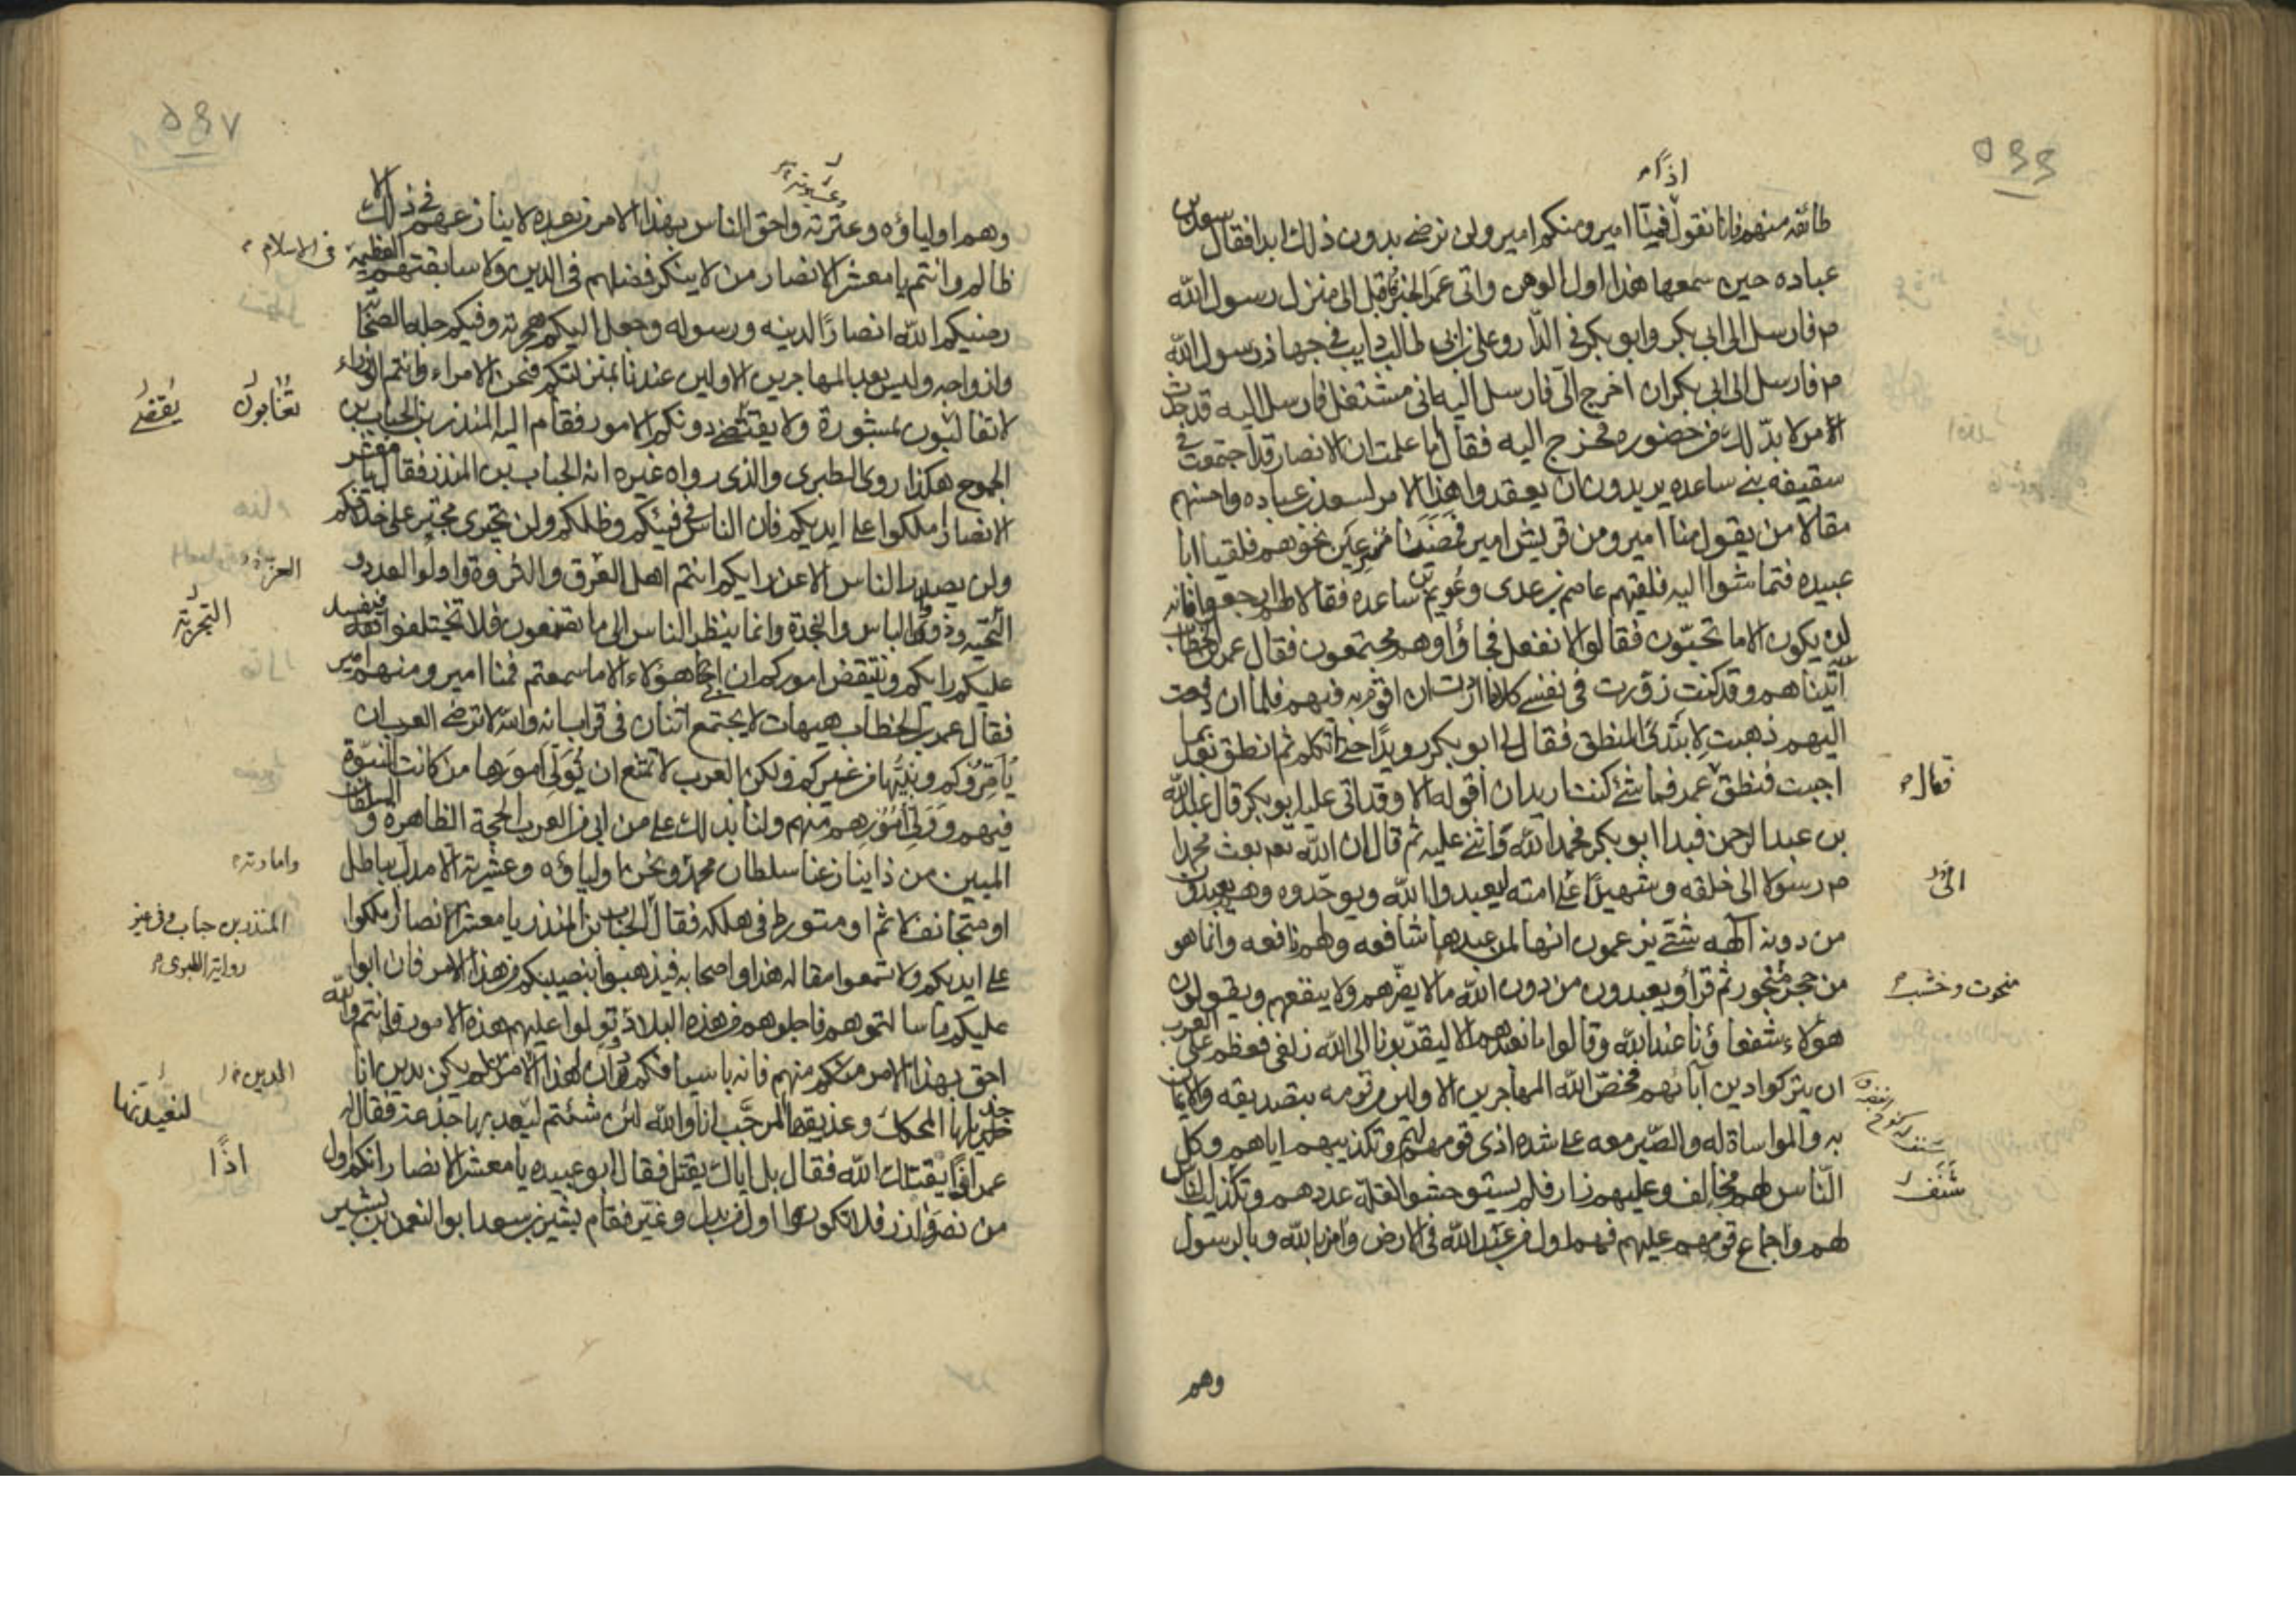 اذًا
طائفه منهم فانا نقول فمنّا امير ومنكم امير ولن نرضى بدون ذلك ابدا فقال سعد بن
عباده حين سمعها هذا اول الوهن واتى عمر الخبر فاقبل الى منزل رسول الله
م فارسل الى ابى بكر وابو بكر فى الدّار وعلى بن ابى طالب دايب فى جهاز رسول الله
م فارسل الى ابى بكر ان اخرج الىّ فارسل اليه انى مشتغل فارسل اليه قد حدث
الامر لا بدّ لك من حضوره فخرج اليه فقال اما علمت ان الانصار قد اجتمعت فى
سقيفه بنى ساعده يريدون ان يعقدوا هذا الامر لسعد بن عباده واحسنهم
مقالا من يقول منا امير ومن قريش امير فمضيا مسرعين نحوهم فلقيا ابا
عبيده فتماشوا اليه فلقيهم عاصم بن عدى وعويم بن ساعده فقالا لهم ارجعوا فانه
لن يكون الا ما تحبّون فقالوا لا نفعل فجاؤا وهم مجتمعون فقال عمر بن الخطاب
أتيناهم وقد كنت زورت فى نفسى كلاما اردت ان اقوم به فيهم فلما ان دفعت
اليهم ذهبت لابتدئ المنطق فقال لى ابو بكر رويدًا حتى اتكلم ثم انطق بعد بما
اجبت فنطق عمر فما شئ كنت اريد ان اقوله الا وقد اتى عليه ابو بكر قال عبد الله
فقال
بن عبد الرحمن فبدا ابو بكر فحمد الله واثنى عليه ثم قال ان الله تعم بعث محمدا
م رسولا الى خلقه وشهيدًا على امته ليعبدوا الله ويوحّدوه وهم يعبدون
من دونه آلهه شتّى يزعمون انها لمن عبدها شافعه ولهم نافعه وانما هو
من حجر منحور ثم قرأ ويعبدون من دون الله ما لا يضرّهم ولا ينفعهم ويقولون
منحوت وخشب
هؤلاء شفعاؤنا عند الله وقالوا ما نعبدهم الا ليقربونا الى الله زلفى فعظم على العرب
ان يتركوا دين آبائهم فخصّ الله المهاجرين الاولين من قومه بتصديقه والايمان
به والمواساة له والصّبر معه على شده اذى قومهم لهم وتكذيبهم اياهم وكل
النّاس لهم مخالف وعليهم زار فلم يستوحشوا لقلّة عددهم وتكذيب الناس
شَنَف
لهم واجماع قومهم عليهم فهم اول من عبد الله فى الارض وامن بالله وبالرسول
وهم
وعشيرته
وهم اولياؤه وعترته واحق الناس بهذا الامر من بعده لا ينازعهم فى ذلك الا
ظالم وانتم يا معشر الانصار من لا ينكر فضلهم فى الدين ولا سابقتهم العظيمة
فى الاسلام
رضيكم الله انصارًا لدينه ورسوله وجعل اليكم هجرته وفيكم جله الصحابا
وازواجه وليس بعد المهاجرين الاولين عندنا بمنزلتكم فنحن الامراء وانتم الوزراء
لا تفاتون بمشورة ولا يقتضى دونكم الامور فقام اليه المنذر بن الحباب بن
الجموح هكذا روى الطبرى والذى رواه غيره انه الحباب بن المنذر فقال يا معشر
الانصار املكوا على ايديكم فان الناس فى فيئكم وظلكم ولن يجترى مجتر على خلافكم
ولن يصدر الناس الا عن رايكم انتم اهل العزة والثروة واولوا العدد و
العزة
التجربة
وذووا الباس والنجدة وانما ينظر الناس الى ما تصنعون فلا تختلفوا فيفسد
عليكم رايكم وتنتقض اموركم ان ابى هؤلاء الا ما سمعتم فمنا امير ومنهم امير
فقال عمر بن الخطاب هيهات لا يجتمع اثنان فى قراب انه والله لا ترضى العرب ان
يأمّروكم ونبيّها من غيركم ولكن العرب لا تمتنع ان تولّى امورها من كانت النبوّة
فيهم وولى امورهم منهم ولنا بذلك على من ابى من العرب الحجة الظاهرة والسلطان
المبين من ذا ينازعنا سلطان محمد ونحن اولياؤه وعشيرته الا مدل بباطل
وامارته
او متجانف لاثم او متورط فى هلكه فقال الحباب بن المنذر يا معشر الانصار املكوا
المنذر بن حباب وفى غير
رواية الطبرى
على ايديكم ولا تسمعوا مقاله هذا واصحابه فيذهبوا بنصيبكم من هذا الامر فان ابوا
عليكم ما سالتموهم فاجلوهم من هذه البلاد وتولوا عليهم هذه الامور فانتم والله
احق بهذا الامر منهم فانه باسيافكم دان لهذا الامر من لم يكن يدين انا
الدين
جذيلها المحكك وعذيقها المرجّب انا والله لئن شئتم لنعيدنها جذعة فقال
لنعيدنها
عمر اذًا يقتلك الله فقال بل اياك يقتل فقال ابو عبيده يا معشر الانصار انكم اول
اذًا
من نصر وازر فلا تكونوا اول من بدل وغيّر فقام بشير بن سعد ابو النعمن بن بشير